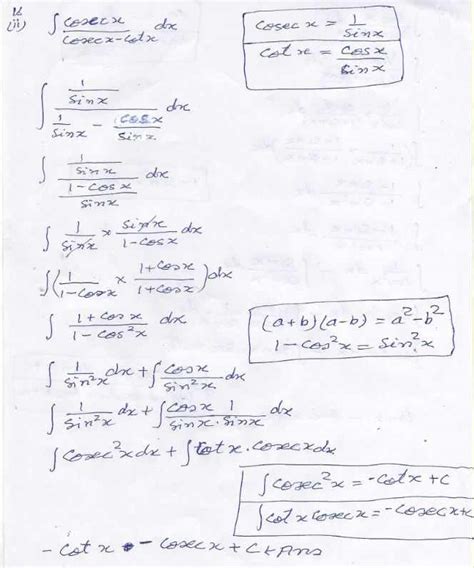 12
(ii) ∫ cosecx / (cosecx - cotx) dx
cosec x = 1 / sinx
cot x = cosx / sinx
∫ (1/sinx) / (1/sinx - cosx/sinx) dx
∫ (1/sinx) / ((1-cosx)/sinx) dx
∫ 1/sinx × sinx/(1-cosx) dx
∫ (1/(1-cosx) × (1+cosx)/(1+cosx)) dx
∫ (1+cosx)/(1-cos²x) dx
(a+b)(a-b) = a²-b²
1-cos²x = sin²x
∫ 1/sin²x dx + ∫ cosx/sin²x dx
∫ 1/sin²x dx + ∫ cosx 1/(sinx.sinx) dx
∫ cosec²x dx + ∫ cotx.cosecx dx
∫ cosec²x = -cotx+c
∫ cotx cosecx = -cosecx+c
- cotx - cosecx + c Ans